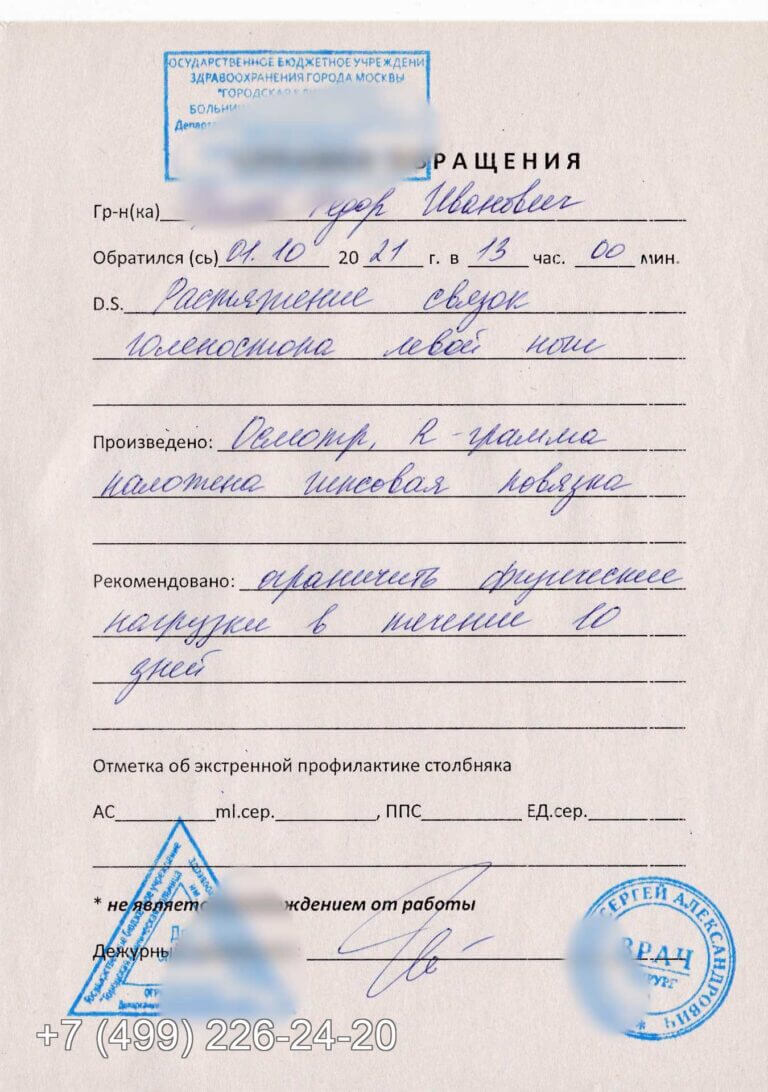 ОСУДАРСТВЕННОЕ БЮДЖЕТНОЕ УЧРЕЖДЕНИ
ЗДРАВООХРАНЕНИЯ ГОРОДА МОСКВЫ
"ГОРОДСКАЯ
БОЛЬНИ
Департ
РАЩЕНИЯ
Гр-н(ка) Федор Иванович
Обратился (сь) 01.10 20 21 г. в 13 час. 00 мин.
D.S. Растяжение связок
голеностопа левой ноги
Произведено: Осмотр, R-грамма
наложена гипсовая повязка
Рекомендовано: ограничить физические
нагрузки в течение 10
дней
Отметка об экстренной профилактике столбняка
АС ml.сер. , ППС ЕД.сер.
* не являетс ждением от работы
Дежурны
Государственное бюджетное учреждение
"Городская клиническая больница
СЕРГЕЙ АЛЕКСАНДРОВИЧ
ВРАЧ
+7 (499) 226-24-20